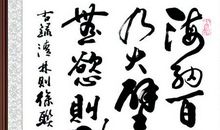 海納百
乃大壁
無慾則
清林則徐聯